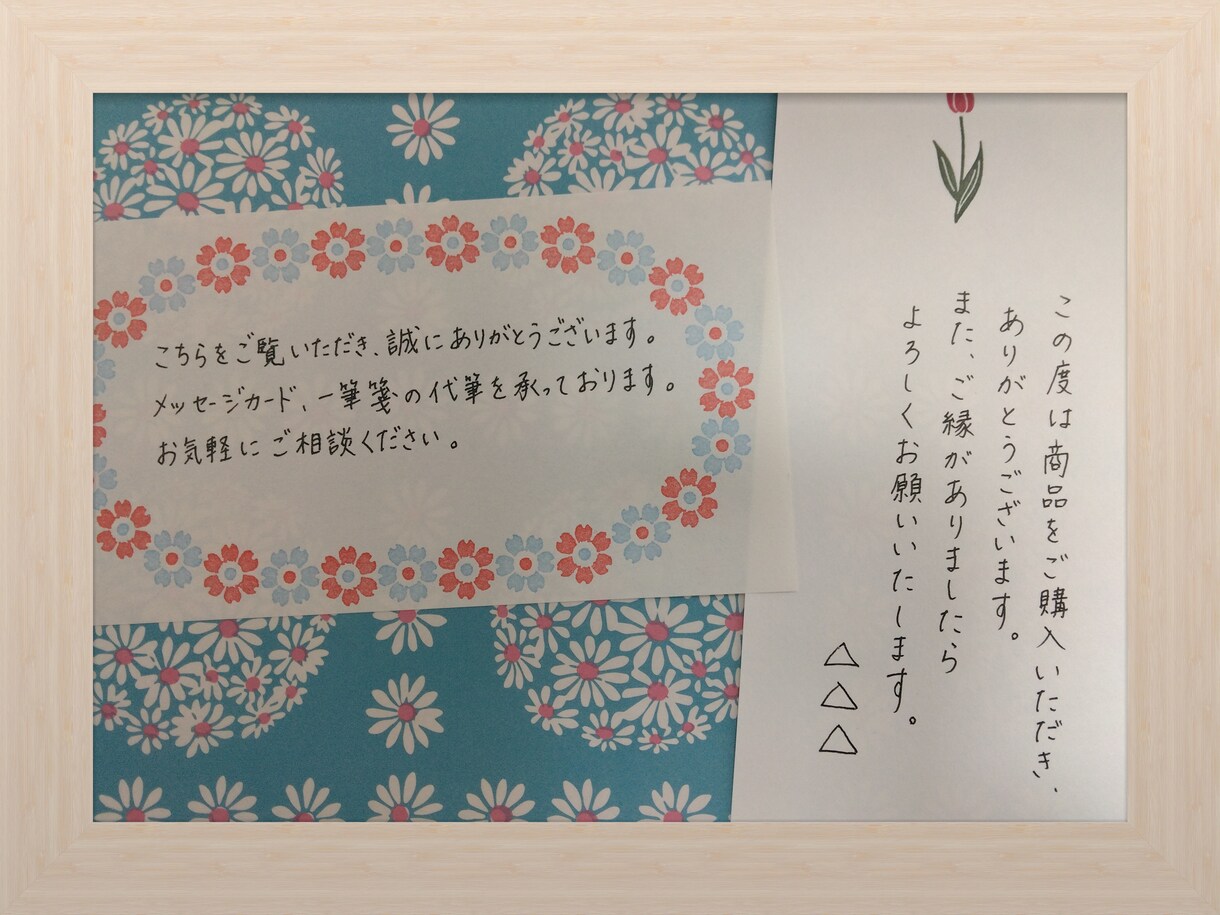 こちらをご覧いただき、誠にありがとうございます。
メッセージカード、一筆箋の代筆を承っております。
お気軽にご相談ください。
この度は商品をご購入いただき、
ありがとうございます。
また、ご縁がありましたら
よろしくお願いいたします。
△△△